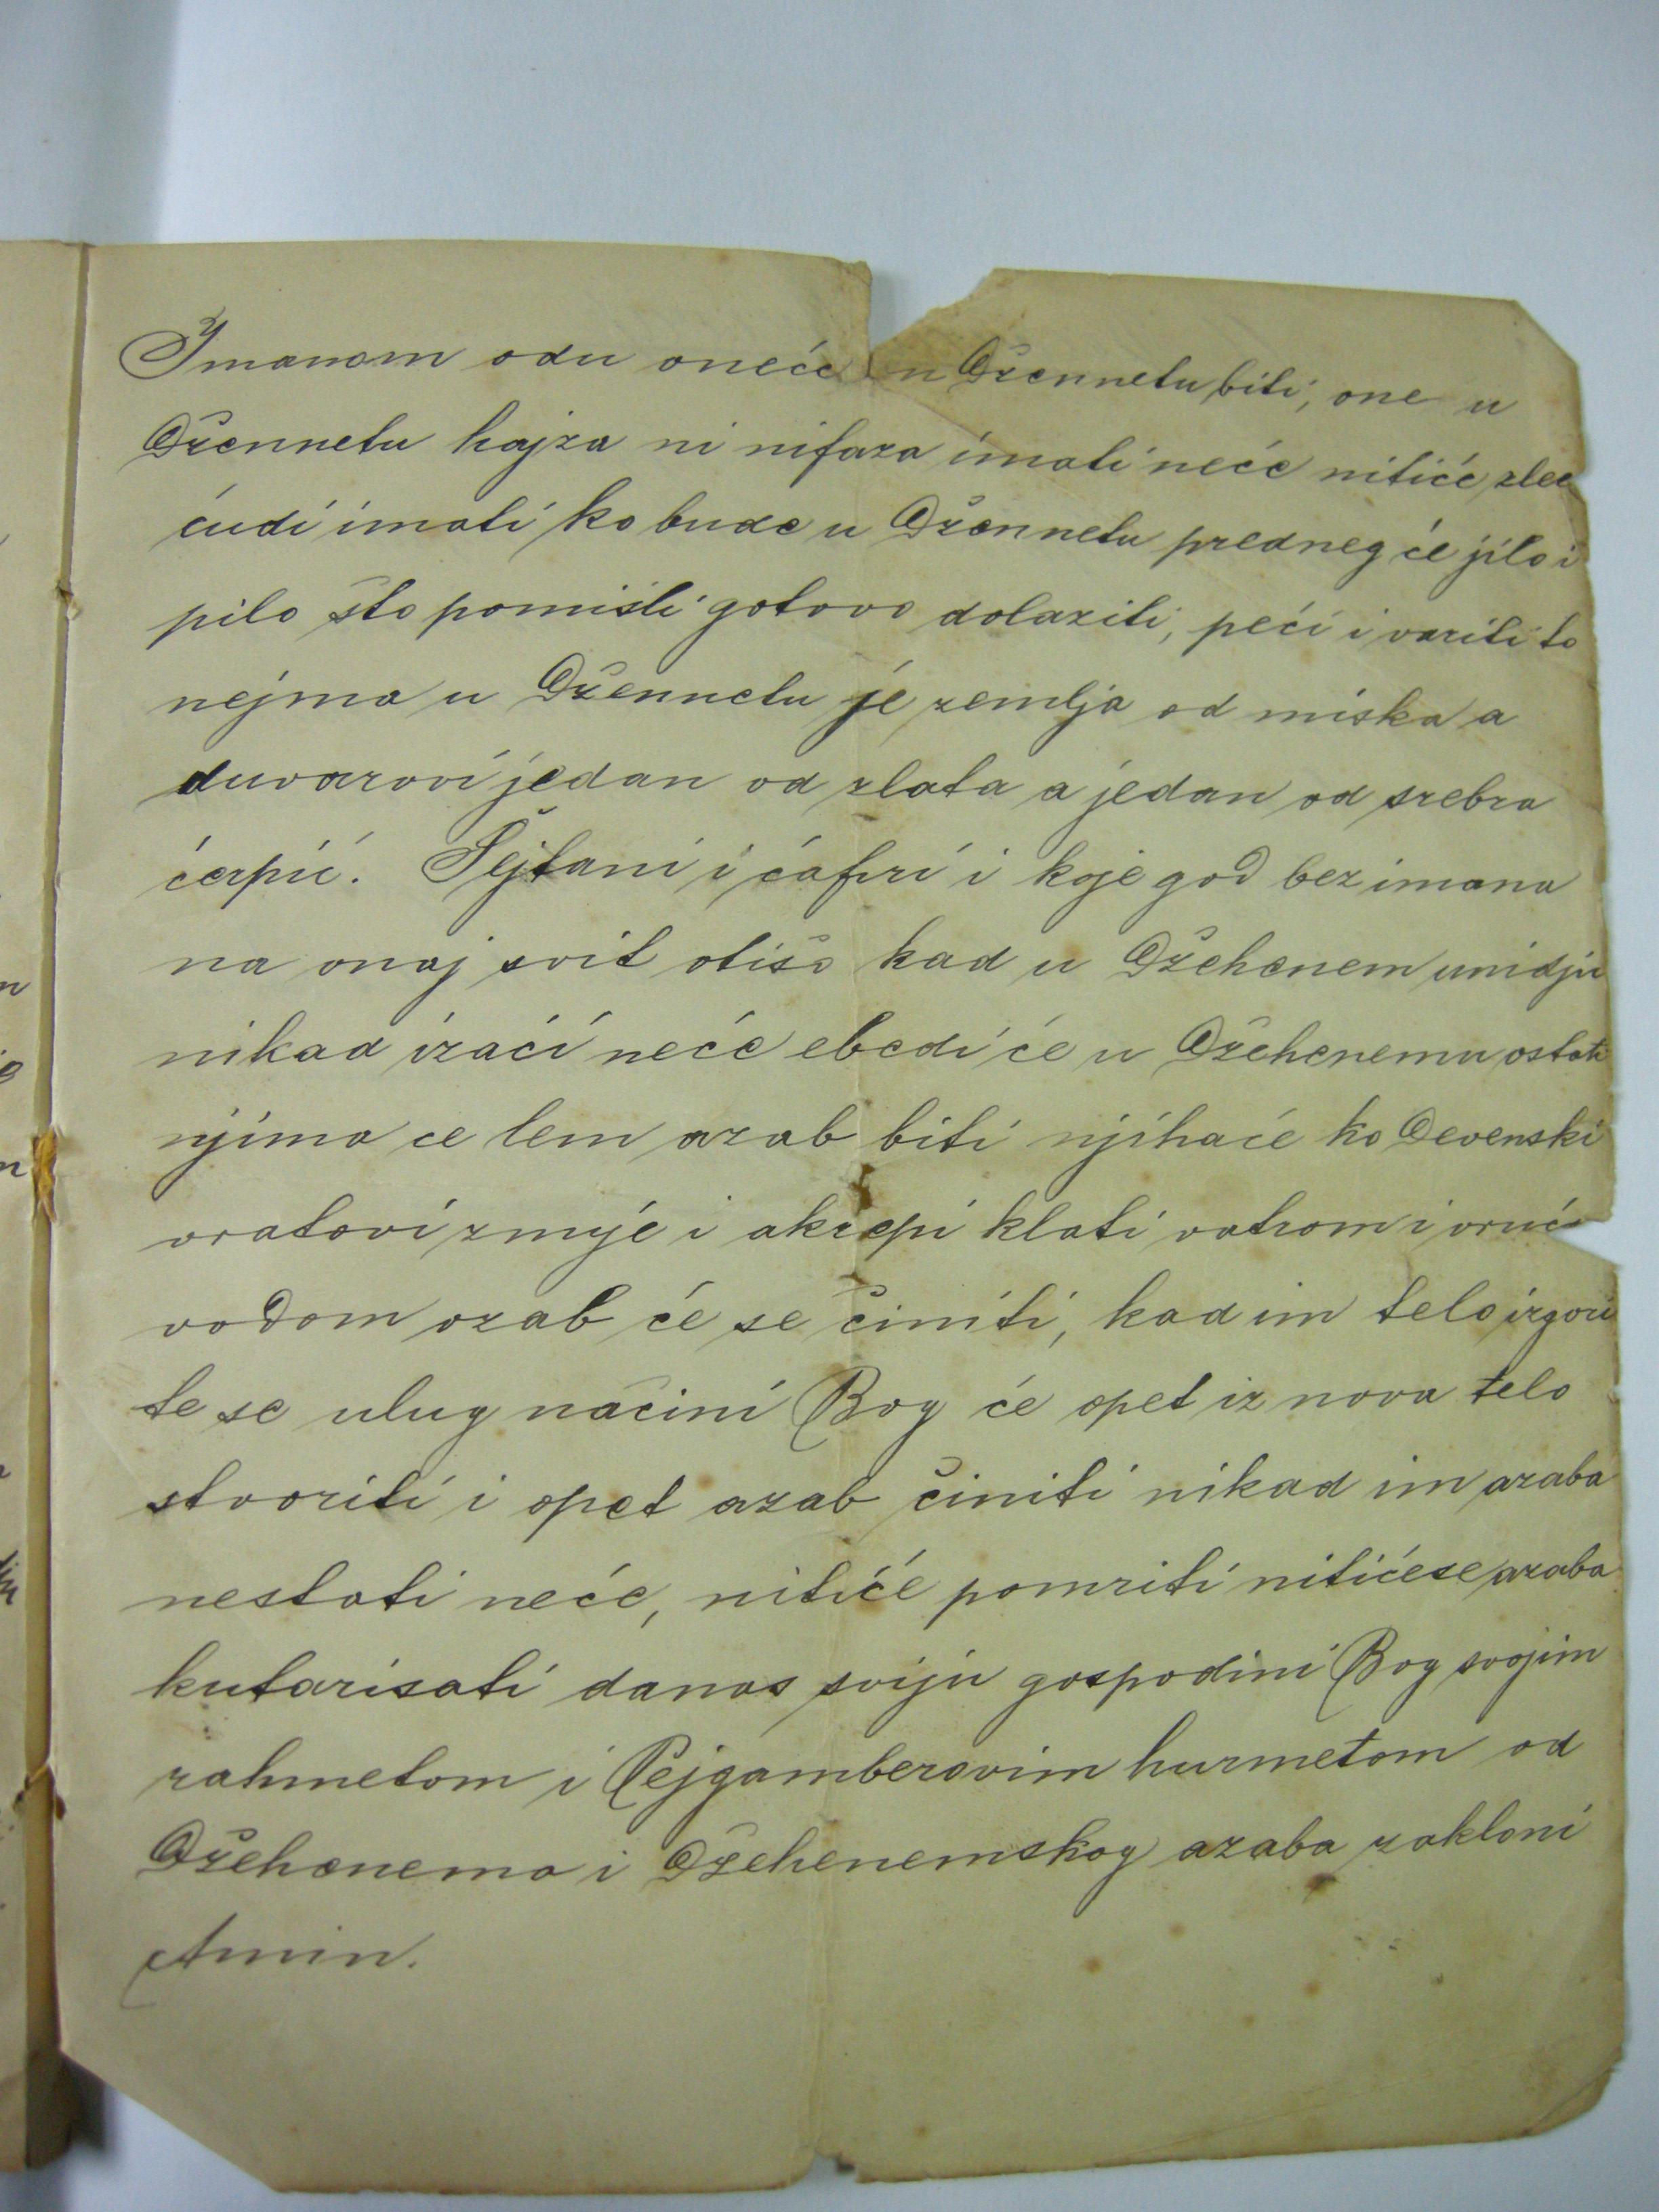 Imanom odu oneće u Džennetu biti, one u
Džennetu hajza ni nifaza imati neće nitiće zlee
ćudi imati ko bude u Džennetu predneg će jilo i
pilo što pomisli gotovo dolaziti, peći i variti to
nejma u Džennetu je zemlja od miska a
duvarovi jedan od zlata a jedan od srebra
ćerpić. Šejtani i ćafiri i koje god bez imana
na onaj svit otišo kad u Džehenem unidju
nikad izaći neće ebedi će u Džehenemu ostati
njima ce lem azab biti njihaće ko Devenski
vratovi zmije i akrepi klati vatrom i vruć
vodom azab će se činiti, kad im telo izgori
te se ulug načini Bog će opet iz nova telo
stvoriti i opet azab činiti nikad im azaba
nestati neće, nitiće pomriti nitićese azaba
kutarisati danas sviju gospodini Bog svojim
rahmetom i Pejgamberovim hurmetom od
Džehenema i Džehenemskog azaba zakloni
Amin.